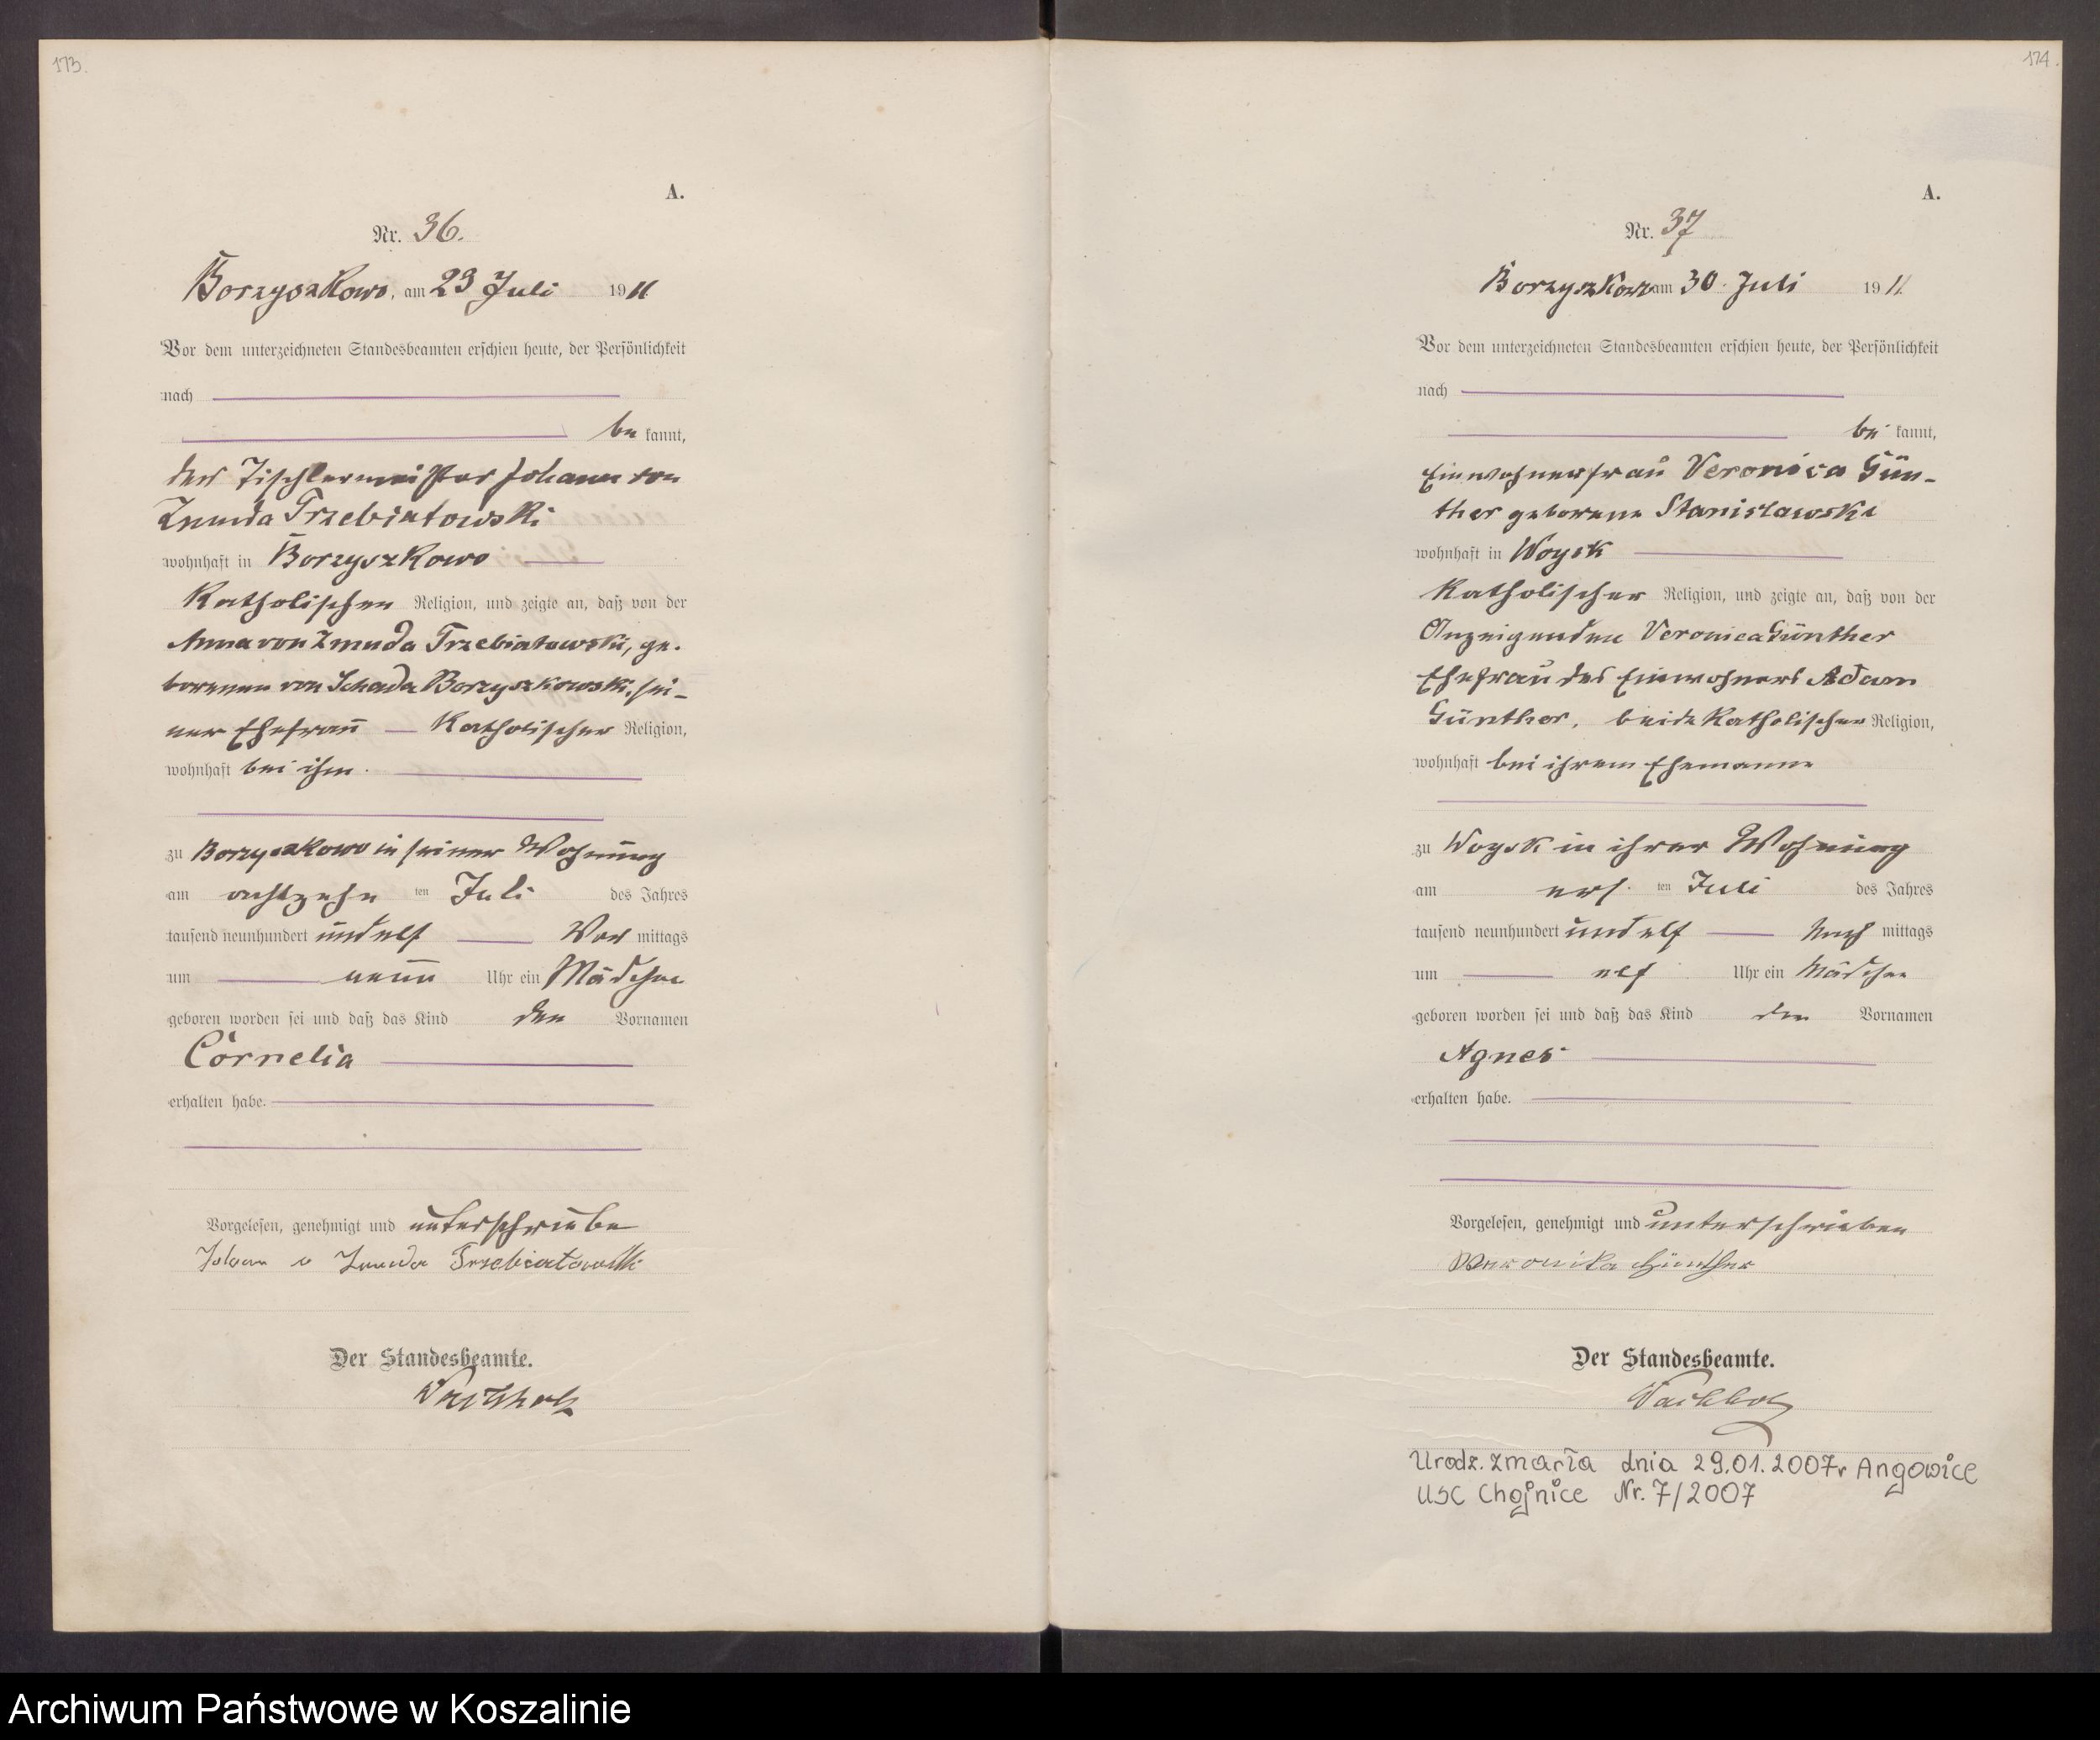 173.
A.
Nr. 36.
Borzyszkowo, am 29 Juli 1911.
Vor dem unterzeichneten Standesbeamten erschien heute, der Persönlichkeit
nach
be kannt,
der Tischlermeister Johann von
Zmuda Trzebiatowski
wohnhaft in Borzyszkowo
Katholischer Religion, und zeigte an, daß von der
Anna von Zmuda Trzebiatowski, ge-
borenen von Schada Borzyszkowski, sei-
ner Ehefrau Katholischer Religion,
wohnhaft bei ihm.
zu Borzyszkowo in seiner Wohnung
am achtzehn ten Juli des Jahres
tausend neunhundert und elf Vor mittags
um neun Uhr ein Mädchen
geboren worden sei und daß das Kind den Vornamen
Cornelia
erhalten habe.
Vorgelesen, genehmigt und unterschrieben
Johann v Zmuda Trzebiatowski
Der Standesbeamte.
174.
A.
Nr. 37
Borzyszkowo am 30. Juli 1911.
Vor dem unterzeichneten Standesbeamten erschien heute, der Persönlichkeit
nach
be kannt,
Einwohnerfrau Veronica Gün-
ther geborene Stanislawski
wohnhaft in Woysk
Katholischer Religion, und zeigte an, daß von der
Anzeigenden Veronica Günther
Ehefrau des Einwohners Adam
Günther, beide Katholischer Religion,
wohnhaft bei ihrem Ehemanne
zu Woysk in ihrer Wohnung
am ers. ten Juli des Jahres
tausend neunhundert und elf Nach mittags
um elf Uhr ein Mädchen
geboren worden sei und daß das Kind den Vornamen
Agnes
erhalten habe.
Vorgelesen, genehmigt und unterschrieben
Veronika Günther
Der Standesbeamte.
Urodz. zmarła dnia 29.01.2007r Angowice
USC Chojnice Nr. 7/2007
Archiwum Państwowe w Koszalinie